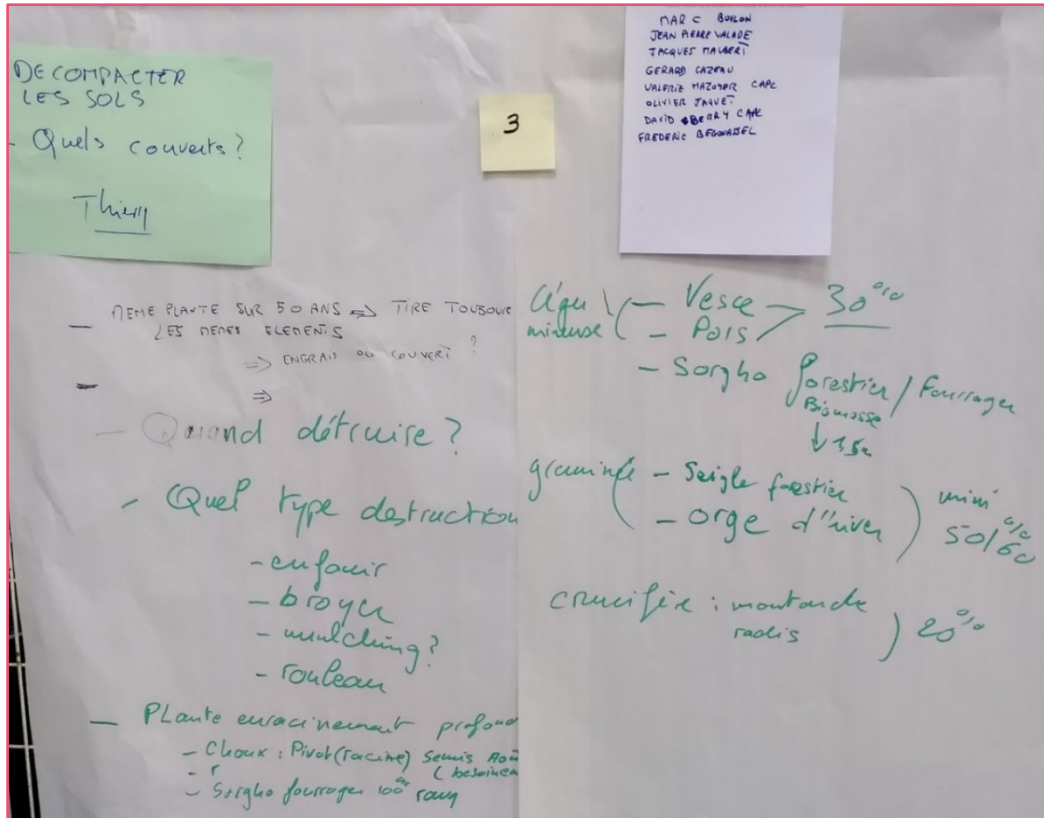 DECOMPACTER
LES SOLS
- Quels couverts ?
Thierry
3
MARC BOYLON
JEAN PIERRE VALADE
JACQUES MAUBERT
GERARD CAZEAU
VALERIE MAZOYER CAPL
OLIVIER JAQUET
DAVID BERRY CAPL
FREDERIC
- MEME PLANTE SUR 50 ANS => TIRE TOUJOUR
LES MEMES ELEMENTS
=> ENGRAIS OU COUVERT ?
- =>
- Quand détruire ?
- Quel type destruction
- enfouir
- broyer
- mulching ?
- rouleau
- PLante enracinement profond
- Choux : Pivot (racine) Semis Aoû
- r (besoin en
- Sorgho fourrager 100 rang
légu
mineuse
- Vesce
- Pois
30 %
- Sorgho forestier / Fourrager
Biomasse
↓
graminée
- Seigle forestier
- orge d'hiver
mini
50/60 %
crucifère : moutarde
radis
) 20 %